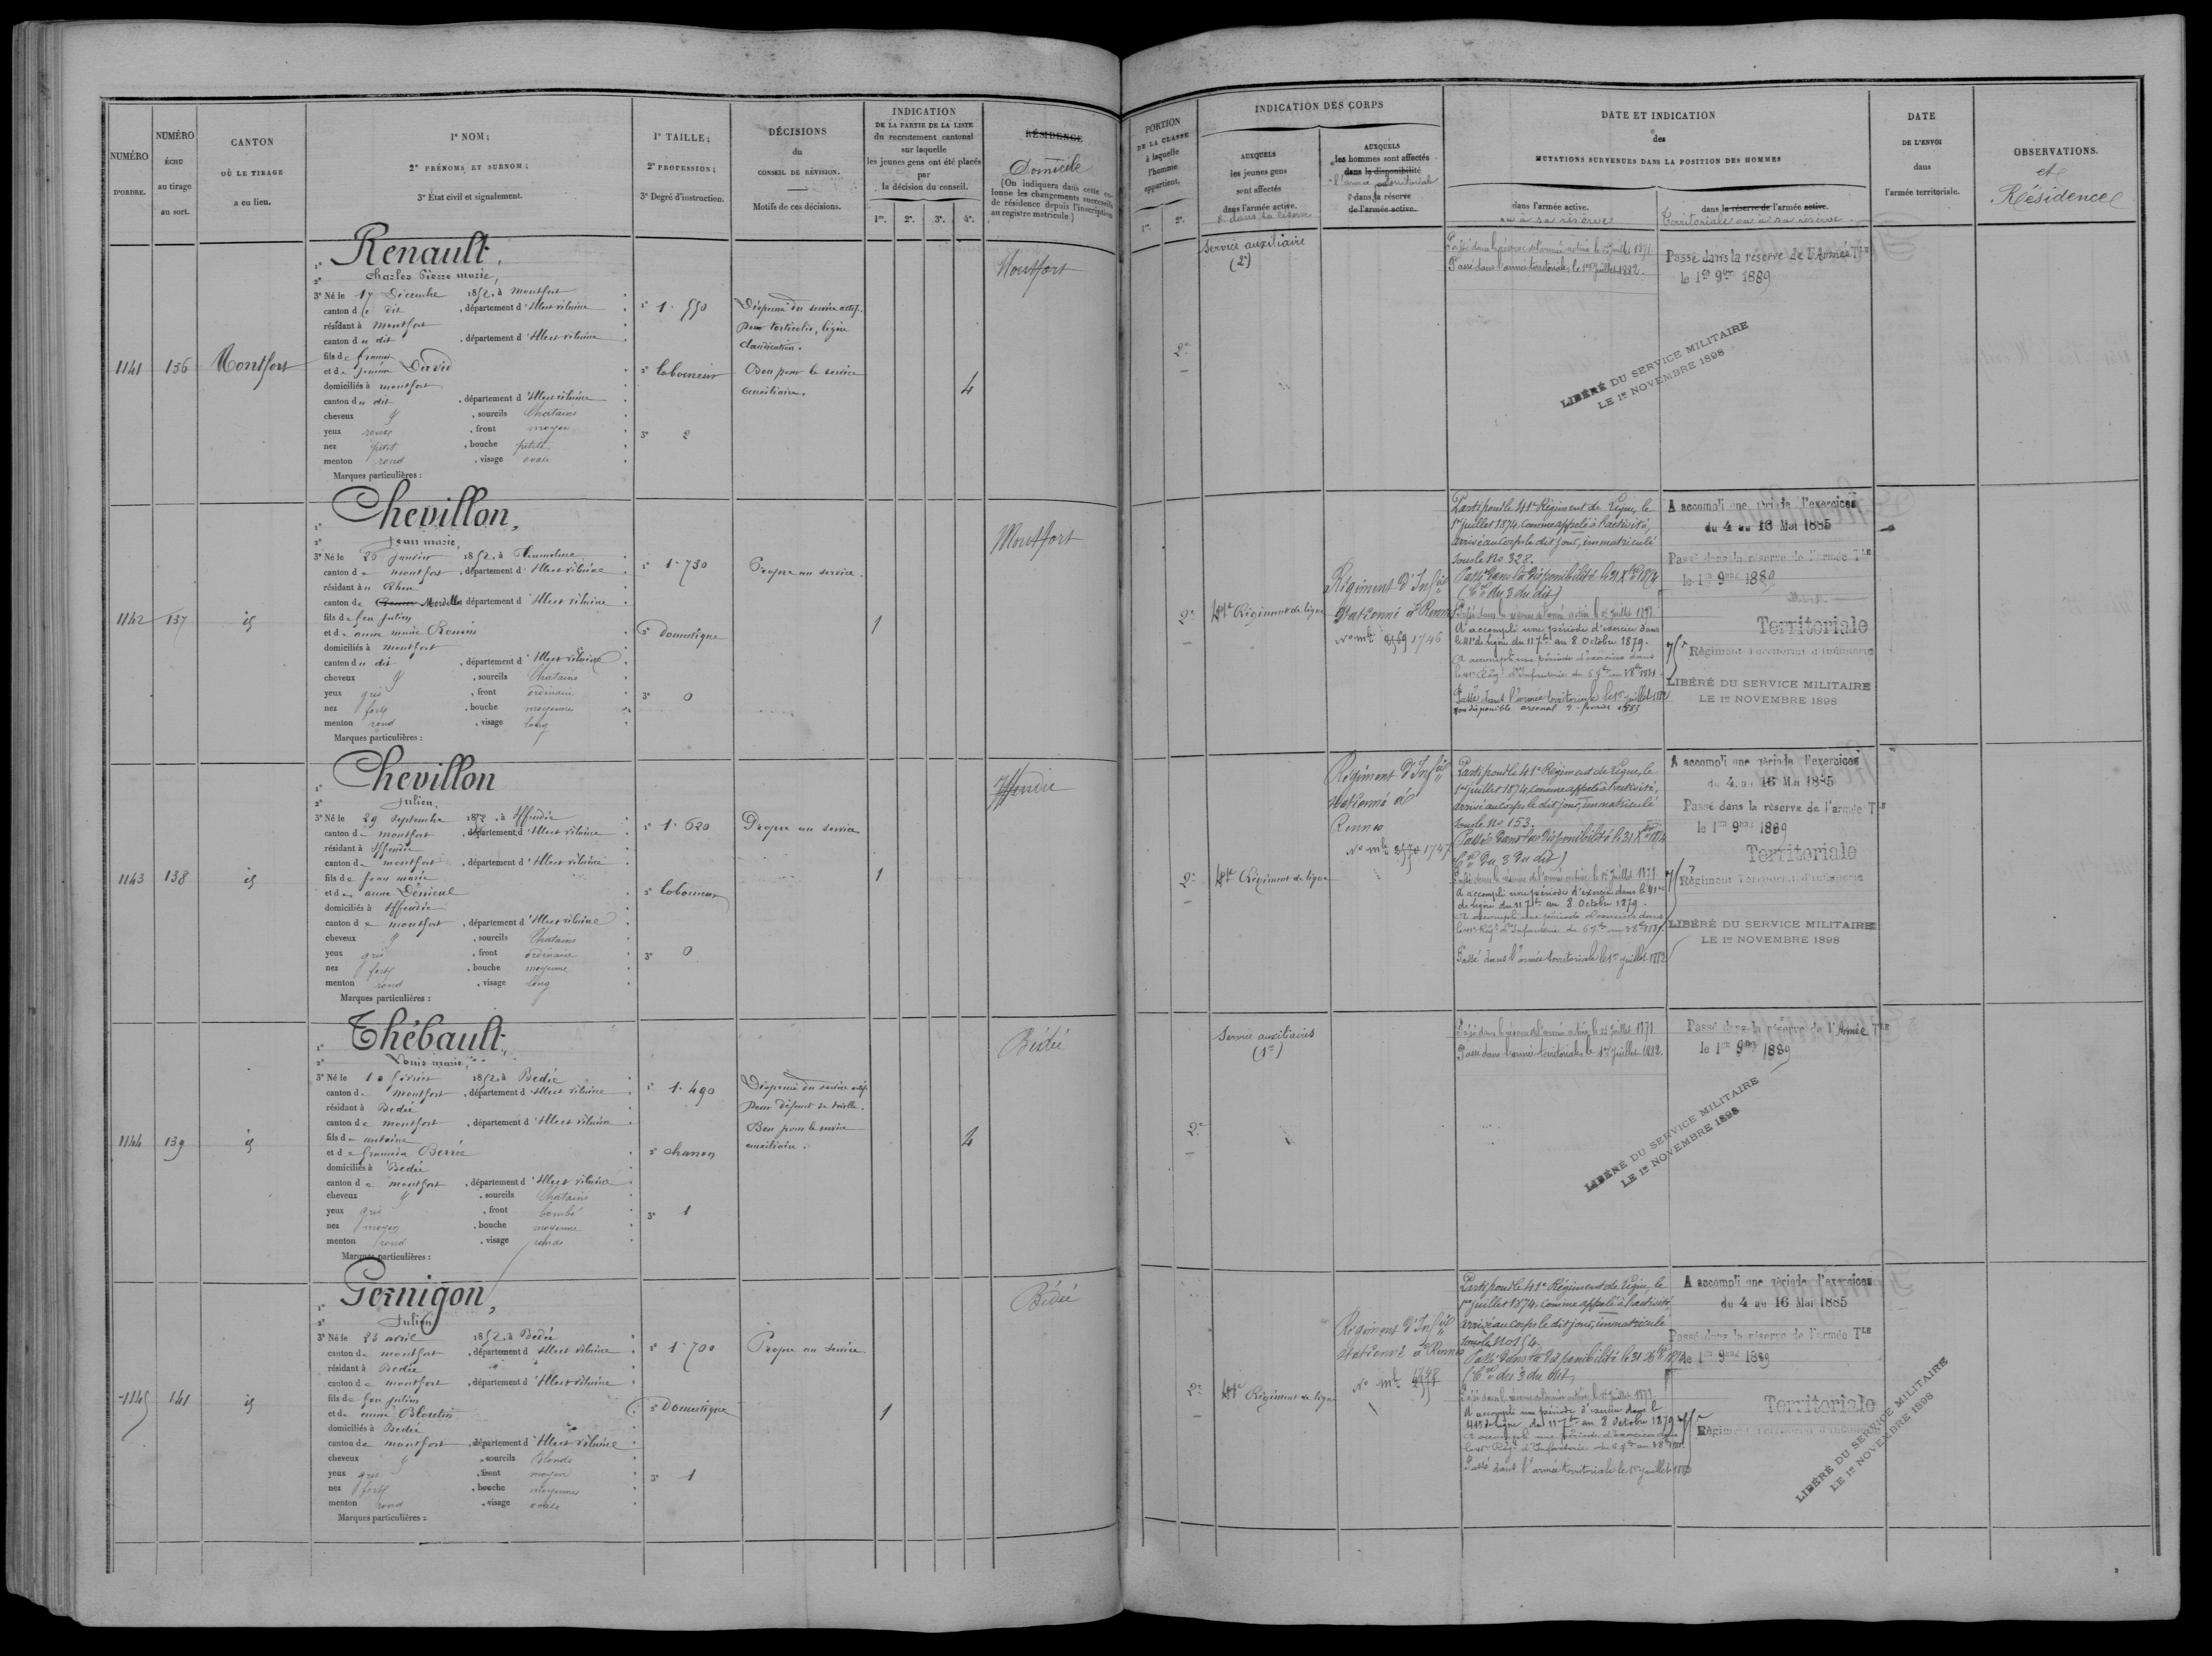 NUMÉRO
D'ORDRE.
NUMÉRO
ÉCHU
au tirage
au sort.
CANTON
OÙ LE TIRAGE
a eu lieu.
1° NOM;
2° PRÉNOMS ET SURNOM;
3° État civil et signalement.
1° TAILLE;
2° PROFESSION;
3° Degré d'instruction.
DÉCISIONS
du
CONSEIL DE RÉVISION.
Motifs de ces décisions.
INDICATION
DE LA PARTIE DE LA LISTE
du recrutement cantonal
sur laquelle
les jeunes gens ont été placés
par
la décision du conseil.
1re. 2e. 3e. 4e.
RÉSIDENCE
Domicile
(On indiquera dans cette colonne les changements successifs
de résidence depuis l'inscription
au registre matricule.)
PORTION
DE LA CLASSE
à laquelle
l'homme
appartient.
1re. 2e.
INDICATION DES CORPS
AUXQUELS
les jeunes gens
sont affectés
dans l'armée active.
& dans la réserve
AUXQUELS
les hommes sont affectés
dans la disponibilité
l'armée territoriale
& dans sa réserve
de l'armée active.
DATE ET INDICATION
des
MUTATIONS SURVENUES DANS LA POSITION DES HOMMES
dans l'armée active.
ou à sa réserve
dans la réserve de l'armée active.
Territoriale ou à sa réserve
DATE
DE L'ENVOI
dans
l'armée territoriale.
OBSERVATIONS.
et
Résidence
1141
136
Montfort
1° Renault,
2° Charles Pierre marie,
3° Né le 17 Décembre 1852, à Montfort
canton du dit, département d'Ille et vilaine
résidant à Montfort
canton du dit, département d'Ille et vilaine
fils de
et de David
domiciliés à montfort
canton du dit, département d'Ille et vilaine
cheveux & sourcils Chatains
yeux roux, front moyen
nez petit, bouche petite
menton rond, visage ovale
Marques particulières :
1° 1.550
2° laboureur
3° 2
Dispensé du service actif.
Pour torticolis, légère
claudication.
Bon pour le service
auxiliaire.
4
Montfort
2e
Service auxiliaire
(2e)
Passé dans la réserve de l'armée active le 1er juillet 1877
Passé dans l'armée territoriale, le 1er juillet 1882.
Passé dans la réserve de l'Armée Tle
le 1er 9bre 1889
LIBÉRÉ DU SERVICE MILITAIRE
LE 1er NOVEMBRE 1898
1142
137
id
1° Chevillon,
2° Jean marie,
3° Né le 26 Janvier 1852, à
canton de montfort, département d'Ille et vilaine
résidant à Rheu
canton de Mordelles département d'Ille et vilaine
fils de feu Julien
et de anne marie
domiciliés à montfort
canton du dit, département d'Ille et vilaine
cheveux & sourcils Chatains
yeux gris, front ordinaire
nez fort, bouche moyenne
menton rond, visage long
Marques particulières :
1° 1.730
2° Domestique
3° 0
Propre au service.
1
Montfort
2e
41e Régiment de ligne
Régiment d'Infie
stationné à Rennes
No mle 1746
Parti pour le 41e Régiment de Ligne, le
1er juillet 1874, comme appelé à l'activité,
arrivé au corps le dit jour, immatriculé
sous le No 328.
Passé dans la disponibilité le 31 Xbre 1874
(Con du 3 du dit)
Passé dans la réserve de l'armée active le 1er juillet 1877.
A accompli une période d'exercice dans
le 41e de ligne du 11 7bre au 8 Octobre 1879.
A accompli une période d'exercices dans
le 41e Régt d'Infanterie du 6 7bre au 3 8bre 1881.
Passé dans l'armée territoriale le 1er juillet 1882
non disponible arsenal 2 février 1883
A accompli une période d'exercices
du 4 au 16 Mai 1885
Passé dans la réserve de l'armée Tle
le 1er 9bre 1889
Territoriale
75e Régiment Territorial d'Infanterie
LIBÉRÉ DU SERVICE MILITAIRE
LE 1er NOVEMBRE 1898
1143
138
id
1° Chevillon
2° Julien,
3° Né le 29 Septembre 1852, à Iffendic
canton de montfort, département d'Ille et vilaine
résidant à Iffendic
canton de montfort, département d'Ille et vilaine
fils de Jean marie
et de anne
domiciliés à Iffendic
canton de montfort, département d'Ille et vilaine
cheveux & sourcils Chatains
yeux gris, front ordinaire
nez fort, bouche moyenne
menton rond, visage long
Marques particulières :
1° 1.620
2° laboureur
3° 0
Propre au service
1
Iffendic
2e
41e Régiment de ligne
Régiment d'Infie
stationné à
Rennes
No mle 1747
Parti pour le 41e Régiment de Ligne, le
1er juillet 1874, comme appelé à l'activité,
arrivé au corps le dit jour, immatriculé
sous le No 153.
Passé dans la disponibilité le 31 Xbre 1874
(Con du 3 du dit)
Passé dans la réserve de l'armée active le 1er juillet 1877
A accompli une période d'exercice dans le 41e
de ligne du 11 7bre au 8 Octobre 1879.
A accompli une période d'exercices dans
le 41e Régt d'Infanterie du 6 7bre au 3 8bre 1881.
Passé dans l'armée territoriale le 1er juillet 1882
A accompli une période d'exercices
du 4 au 16 Mai 1885
Passé dans la réserve de l'armée Tle
le 1er 9bre 1889
Territoriale
75e Régiment Territorial d'Infanterie
LIBÉRÉ DU SERVICE MILITAIRE
LE 1er NOVEMBRE 1898
1144
139
id
1° Thébault,
2° Louis marie,
3° Né le 10 février 1852, à Bedée
canton de montfort, département d'Ille et vilaine
résidant à Bedée
canton de montfort, département d'Ille et vilaine
fils de antoine
et de
domiciliés à Bedée
canton de montfort, département d'Ille et vilaine
cheveux & sourcils Chatains
yeux gris, front bombé
nez moyen, bouche moyenne
menton rond, visage ronde
Marques particulières :
1° 1.490
2°
3° 1
Dispensé du service actif
Pour défaut de taille.
Bon pour le service
auxiliaire.
4
Bédée
2e
Services auxiliaires
(1er)
Passé dans la réserve de l'armée active le 1er juillet 1877
Passé dans l'armée territoriale, le 1er juillet 1882.
Passé dans la réserve de l'Armée Tle
le 1er 9bre 1889
LIBÉRÉ DU SERVICE MILITAIRE
LE 1er NOVEMBRE 1898
1145
141
id
1° Pernigon,
2° Julien
3° Né le 23 avril 1852, à Bedée
canton de montfort, département d'Ille et vilaine
résidant à Bedée
canton de montfort, département d'Ille et vilaine
fils de feu Julien
et de anne
domiciliés à Bedée
canton de montfort, département d'Ille et vilaine
cheveux & sourcils blonds
yeux gris, front moyen
nez fort, bouche moyenne
menton rond, visage ovale
Marques particulières :
1° 1.700
2° Domestique
3° 1
Propre au service
1
Bédée
2e
41e Régiment de ligne
Régiment d'Infie
stationné à Rennes
No mle 1748
Parti pour le 41e Régiment de Ligne, le
1er juillet 1874, comme appelé à l'activité
arrivé au corps le dit jour, immatriculé
sous le No 154.
Passé dans la disponibilité le 31 Xbre 1874
(Con du 3 du dit)
Passé dans la réserve de l'armée active le 1er juillet 1877
A accompli une période d'exercice dans le
41e de ligne du 11 7bre au 8 Octobre 1879
A accompli une période d'exercices dans
le 41e Régt d'Infanterie du 6 7bre au 3 8bre 1881.
Passé dans l'armée territoriale le 1er juillet 1882
A accompli une période d'exercices
du 4 au 16 Mai 1885
Passé dans la réserve de l'armée Tle
le 1er 9bre 1889
Territoriale
75e Régiment Territorial d'Infanterie
LIBÉRÉ DU SERVICE MILITAIRE
LE 1er NOVEMBRE 1898